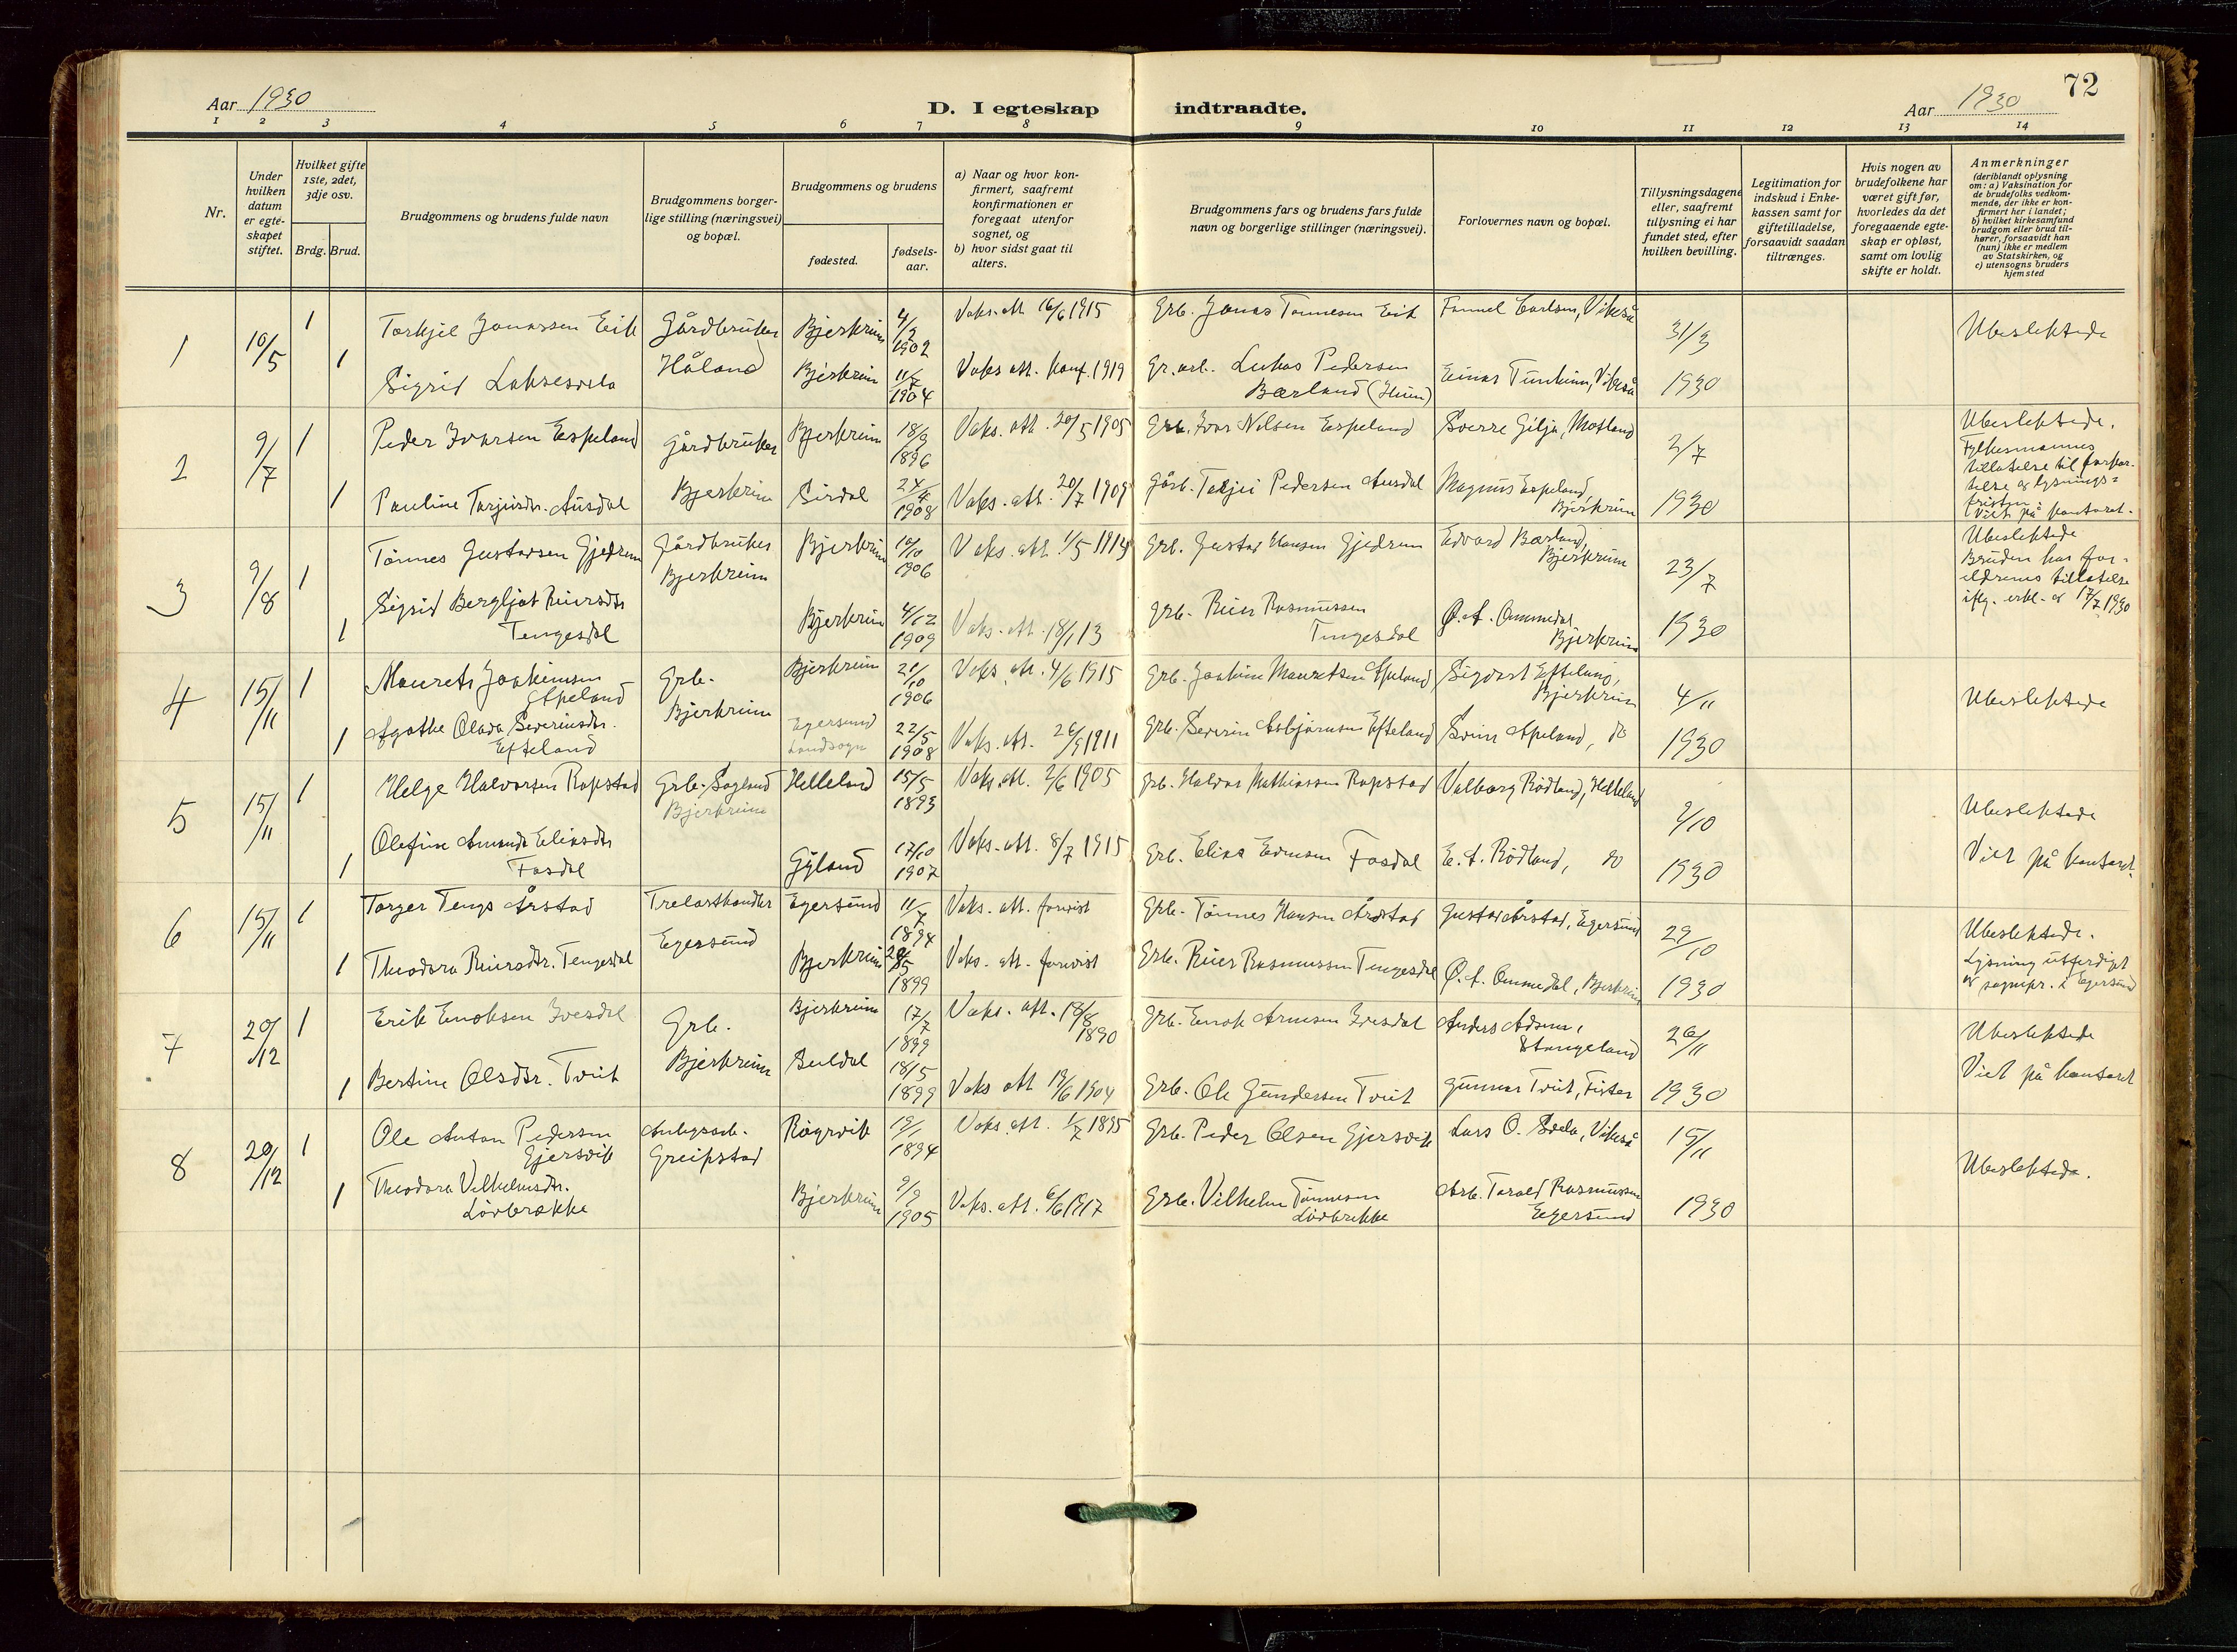 72
Aar 1930
D. I egteskap indtraadte.
Aar 1930
1 2 3 4 5 6 7 8 9 10 11 12 13 14
Nr.
Under hvilken datum er egte-skapet stiftet.
Hvilket gifte 1ste, 2det, 3dje osv.
Brdg. Brud.
Brudgommens og brudens fulde navn
Brudgommens borger-lige stilling (næringsvei) og bopæl.
Brudgommens og brudens
fødested.
fødsels-aar.
a) Naar og hvor kon-firmert, saafremt konfirmationen er foregaat utenfor sognet, og
b) hvor sidst gaat til alters.
Brudgommens fars og brudens fars fulde navn og borgerlige stillinger (næringsvei).
Forlovernes navn og bopæl.
Tillysningsdagene eller, saafremt tillysning ei har fundet sted, efter hvilken bevilling.
Legitimation for indskud i Enke-kassen samt for giftetilladelse, forsaavidt saadan tiltrænges.
Hvis nogen av brudefolkene har været gift før, hvorledes da det foregaaende egte-skap er opløst, samt om lovlig skifte er holdt.
Anmerkninger (deriblandt oplysning om: a) Vaksination for de brudefolks vedkom-mende, der ikke er kon-firmert her i landet; b) hvilket kirkesamfund brudgom eller brud til-hører, forsaavidt han (hun) ikke er medlem av Statskirken, og c) utensogns bruders hjemsted
1 10/5 1 Torkjel Jonassen Eik Gårdbruker Bjerkreim 4/3 1902 Vaks. att 16/6 1915 Grb. Jonas Tønnesen Eik Carlsen, Vikeså 31/3 Ubeslektede
1 Sigrid Laksesvela Håland Bjerkreim 11/7 1904 Vaks att. konf. 1919 Gr.arb. Lukas Pedersen Bærland Einar Vikeså 1930
2 9/7 1 Peder Ivarsen Espeland Gårdbruker Bjerkreim 18/9 1896 Vaks. att. 20/5 1905 Grb. Ivar Nilsen Espeland Sverre Gilja, 2/7 Ubeslektede.
Fylkesmannens tillatelse til forkor-telse av lysnings-fristen. Viet på kontoret.
1 Pauline Torjusdtr. Ausdal Bjerkreim Sirdal 24/4 1908 Vaks. att. 20/7 1909 Gårb. Pedersen Ausdal Magnus Espeland, Bjerkreim 1930
3 9/8 1 Tønnes Gustavsen Gjedrem Gårdbruker Bjerkreim Bjerkreim 10/10 1906 Vaks. att 1/5 1914 Grb. Gustav Hansen Gjedrem Edvard Bærland, Bjerkreim 23/7 Ubeslektede
Bruden har for-eldrenes tillatelse iflg. erkl. av 17/7 1930
1 Sigrid Bergljot Reiersdtr Tengesdal Bjerkreim 4/12 1909 Vaks. att. 18/1 13 Grb. Reier Rasmussen Tengesdal Ø. A. Ommedal Bjerkreim 1930
4 15/11 1 Maurets Joakimsen Apeland Grb. Bjerkreim 21/10 1906 Vaks. att. 4/6 1915 Grb. Joakim Mauretsen Apeland Sigvart Efteland, Bjerkreim 4/11 Ubeslektede
1 Agathe Olava Severinsdtr. Efteland Bjerkreim Egersund Landsogn 22/5 1908 Vaks. att. 26/9 1911 Grb. Severin Asbjørnsen Efteland Svein Apeland, do 1930
5 15/11 1 Helge Halvorsen Rapstad Grb. Bjerkreim Helleland 15/5 1893 Vaks. att. 2/6 1905 Grb. Halvor Mathiassen Rapstad Valborg Rødland, Helleland 9/10 Ubeslektede
1 Olefine Amanda Eliasdtr Fosdal Gyland 17/10 1907 Vaks. att. 8/7 1915 Grb. Elias Fosdal E. A. Rødland, do 1930 Viet på kontoret.
6 15/11 1 Torger Tengs Årstad Trelasthandler Egersund 11/7 1894 Vaks. att. forevist Grb. Tønnes Hansen Årstad Gustav Årstad, Egersund 29/10 Ubeslektede.
Lysning utferdiget av sognepr. i Egersund
1 Theodora Reiersdtr. Tengesdal Egersund Bjerkreim 1899 Vaks. att. forevist Grb. Reier Rasmussen Tengesdal Ø. A. Ommedal, Bjerkreim 1930
7 20/12 1 Erik Enoksen Ivesdal Grb. Bjerkreim 17/7 1899 Vaks. att. 18/8 1890 Grb. Enok Arnesen Ivesdal Anders Stangeland 26/11 Ubeslektede
1 Bertine Olsdtr. Tveit Bjerkreim Suldal 18/5 1899 Vaks att 19/6 1904 Grb. Ole Gundersen Tveit Gunnar Tveit, Fister 1930 Viet på kontoret
8 20/12 1 Ole Anton Pedersen Gjersvik Anlegsarb. Greipstad 19/1 1894 Vaks. att. 1/7 1895 Grb. Peder Olsen Gjersvik Lars O. Svela, Vikeså 15/11 Ubeslektede.
1 Theodora Vilhelmsdtr. Løvbrække Bjerkreim 9/9 1905 Vaks. att. 6/6 1917 Grb. Vilhelm Tønnesen Løvbrekke Arb. Torald Rasmussen Egersund 1930